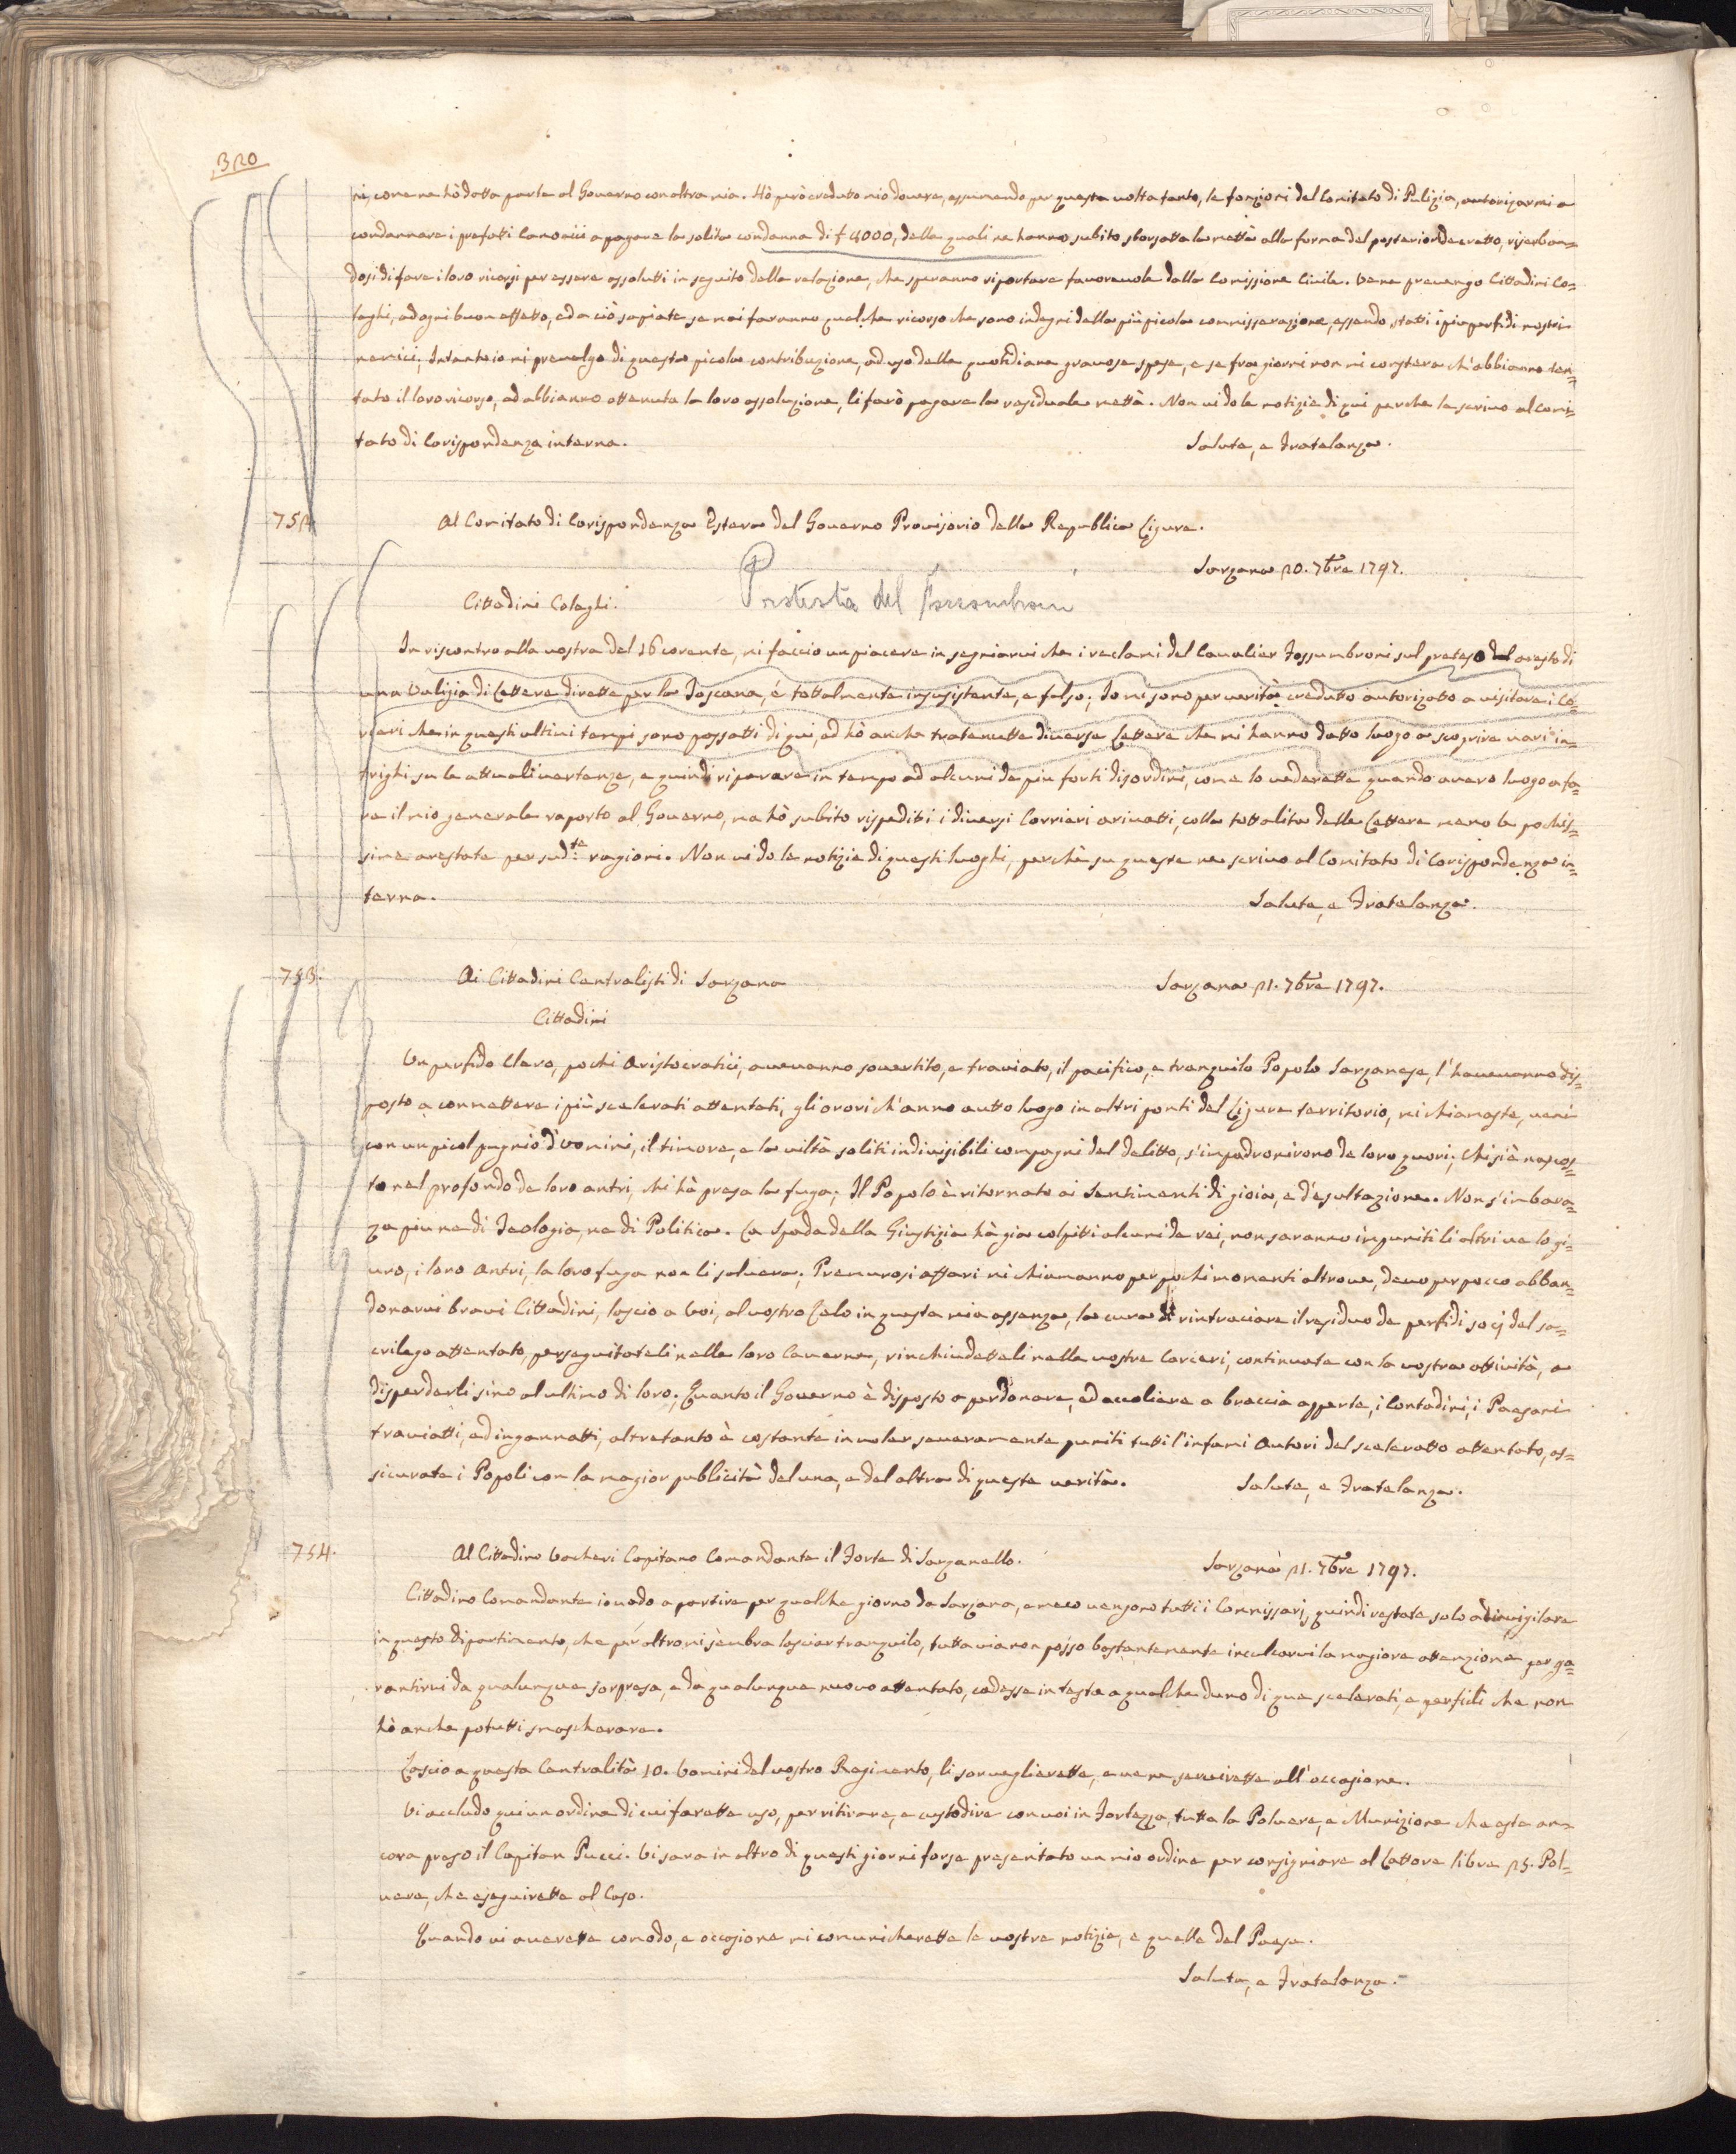 320
ni, come ne hò datta parte al Governo con altra mia. Hò però creduto mio dovere, assumendo per questa volta tanto, le fonzioni del Comitato di Pulizia, autorizarmi a
condannare i prefatti Canonici a pagare la solita condanna di £ 4000, della quali ne hanno subito sborsatta la mettà alla forma del posterior decretto, riserban=
dosi di fare i loro ricorsi per essere assolutti in seguito della relazione, che speranno riportare favorevole dalla Comissione Civile. Ve ne prevengo Cittadini Co=
leghi, ad ogni buon effetto, ed a ciò sapiate se mai faranno qualche ricorso che sono indegni della più picola commisserazione, essendo statti i più perfidi nostri
nemici; Intanto io mi prevalgo di questa picola contribuzione, ad uso delle quottidiane gravose spese, e se fra giorni non mi constera ch'abbianno ten=
tato il loro ricorso, ed abbianno ottenuta la loro assoluzione, li farò pagare la residuale mettà. Non vi do le notizie di qui perche le scrivo al Comi=
tato di Corispondenza interna. Salute, e Fratelanza.
752 Al Comitato di Corispondenza Estera del Governo Provisorio della Republica Ligure.
Sarzana 20. 7bre 1797.
Cittadini Coleghi. Protesta del
In riscontro alla vostra del 16 corente, mi faccio un piacere in segniarvi che i reclami del Cavalier Fossumbroni sul preteso del aresto di
una Valigia di Lettere dirette per la Toscana, é tottalmente insusistente, e falso; Io mi sono per verità creduto autorizatto a visitare i Co=
rieri che in questi ultimi tempi sono passatti di qui, ed hò anche tratenutte diverse Lettere che mi hanno datto luogo a scoprire vari in=
trighi su le attuali vertenze, e quindi riparare in tempo ad alcuni de piu forti disordini, come lo vederette quando avero luogo a fa=
re il mio generale raporto al Governo, ma hò subito rispediti i diversi Corrieri arivatti, colla tottalita delle Lettere meno le pochis=
sime arestate per sud.te ragioni. Non vi do le notizie di questi luoghi, perchè su queste ne scrivo al Comitato di Corispondenza in=
terna. Salute, e Fratelanza.
753. Ai Cittadini Centralisti di Sarzana Sarzana 21. 7bre 1797.
Cittadini
Un perfido Clero, pochi Aristocratici, avevanno sovertito, e traviato, il pacifico, e tranquilo Popolo Sarzanese, l'havevanno dis=
posto a commettere i più scelerati attentati, gli orori ch'anno autto luogo in altri ponti del Ligure territorio, mi chiamaste, veni
con un picol pugnio d'Uomini, il timore, e la viltà soliti indivisibili compagni del delitto, s'impadronirono de loro quori; Chi s'è nascos=
to nel profondo de loro antri, chi hà presa la fuga; Il Popolo è ritornato ai Sentimenti di gioia, e d'esultazione. Non s'imbara=
za piu ne di Teologia, ne di Politica. La Spada della Giustizia hà gia colpitti alcuni de rei, non saranno impuniti li altri ve lo gi=
uro, i loro Antri, la loro fuga non li salvera; Premurosi affari mi chiamanno per pochi momenti altrove, devo per pocco abban=
donarvi bravi Cittadini, lascio a Voi, al vostro Zelo in questa mia assenza, la cura di rintraciare il residuo de perfidi socj del sa=
crilego attentato, perseguitateli nelle loro Caverne, rinchiudetteli nelle vostre Carceri, continuate con la vostra attività, a
disperderli sino al ultimo di loro. Quanto il Governo è disposto a perdonare, ed accoliere a braccia apperte, i Contadini, i Paesani
traviatti, ed ingannatti, altretanto è costante in voler severamente puniti tutti l'infami Autori del sceleratto attentato, as=
sicurate i Popoli con la magior publicità del una, e del altra di queste verità. Salute, e Fratelanza.
754. Al Cittadino Vacheri Capitano Comandante il Forte di Sarzanello. Sarzana 21. 7bre 1797.
Cittadino Comandante io vado a partire per qualche giorno da Sarzana, e meco vengono tutti i Commissarj, quindi restate solo ad invigilare
in questo dipartimento, che per altro mi sembra lasciar tranquilo, tutta via non posso bastantemente inculcarvi la magiore attenzione per ga=
rantirvi da qualunque sorpresa, e da qualunque nuovo attentato, cadesse in testa a qualche duno di que scelerati, e perfidi che non
hò anche potutti smascherare.
Lascio a questa Centralità 10. Uomini del vostro Regimento, li sorveglierette, e ve ne servirette all'occasione.
Vi accludo qui un ordine di cui farette uso, per ritirare, e custodire con voi in Fortezza, tutta la Polvere, e Munizione che esta an=
cora preso il Capitan Pucci. Vi sara in oltro di questi giorni forse presentato un mio ordine per consigniare al Lattore libre 25. Pol=
vere, che eseguirette al Caso.
Quando vi averette comodo, e occasione mi comunicherette le vostre notizie, e quelle del Paese.
Salute, e Fratelanza.